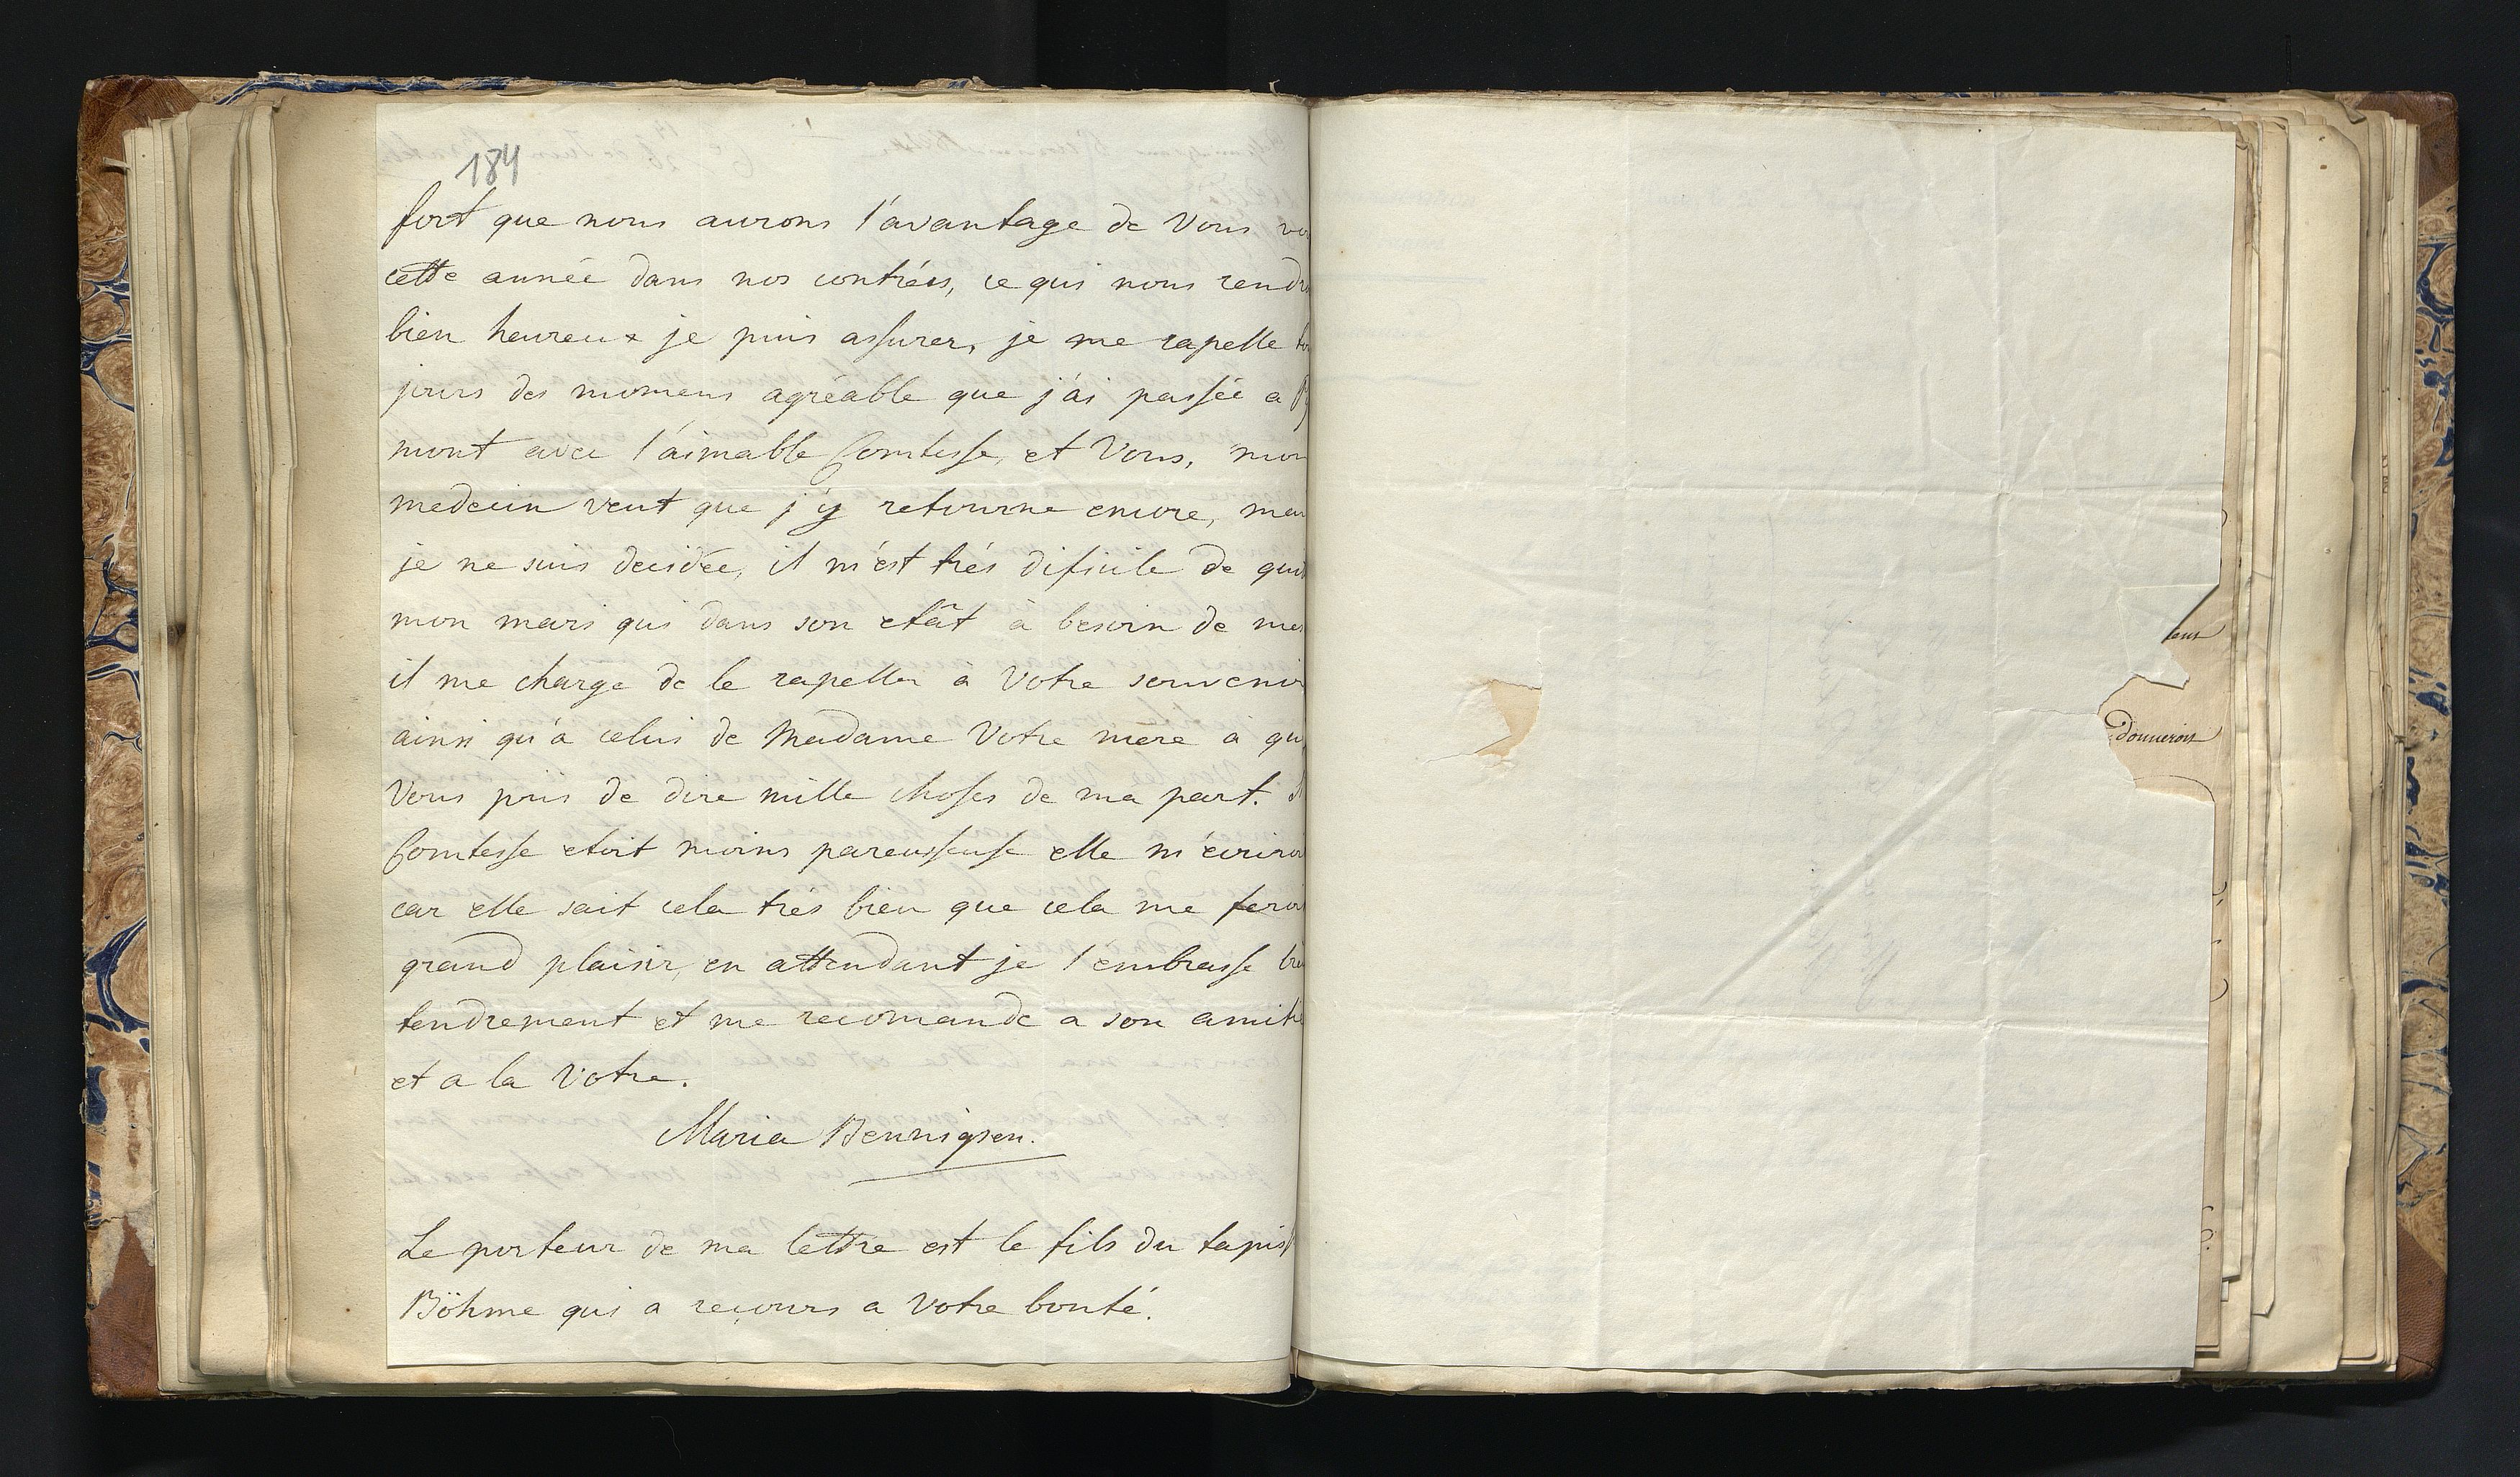 184
fort que nous aurons l'avantage de Vous vo
cette année dans nos contrées, ce qui nous rendr
bien heureux je puis assurer, je me rapelle tou
jours des momens agréable que j'ai passée a Py
mont avec l'aimable Comtesse, et Vous, mon
medecin veut que j'y retourne encore, mai
je ne suis decidée, il m'est trés dificile de quit
mon mari qui dans son etât à besoin de me
il me charge de le rapeller à Votre souvenir
ainsi qu'à celui de Madame Votre mère à qu
Vous priis de dire mille choses de ma part. Si
Comtesse etoit moins pareusseuse elle m'écriroi
car elle sait cela trés bien que cela me feroi
grand plaisir, en attendant je l'embrasse bie
tendrement et me recomande a son amitié
et a la Votre.
Maria Bennigsen.
Le porteur de ma lettre est le fils du tapis
Böhme qui a reçours a Votre bonté.
donneroit